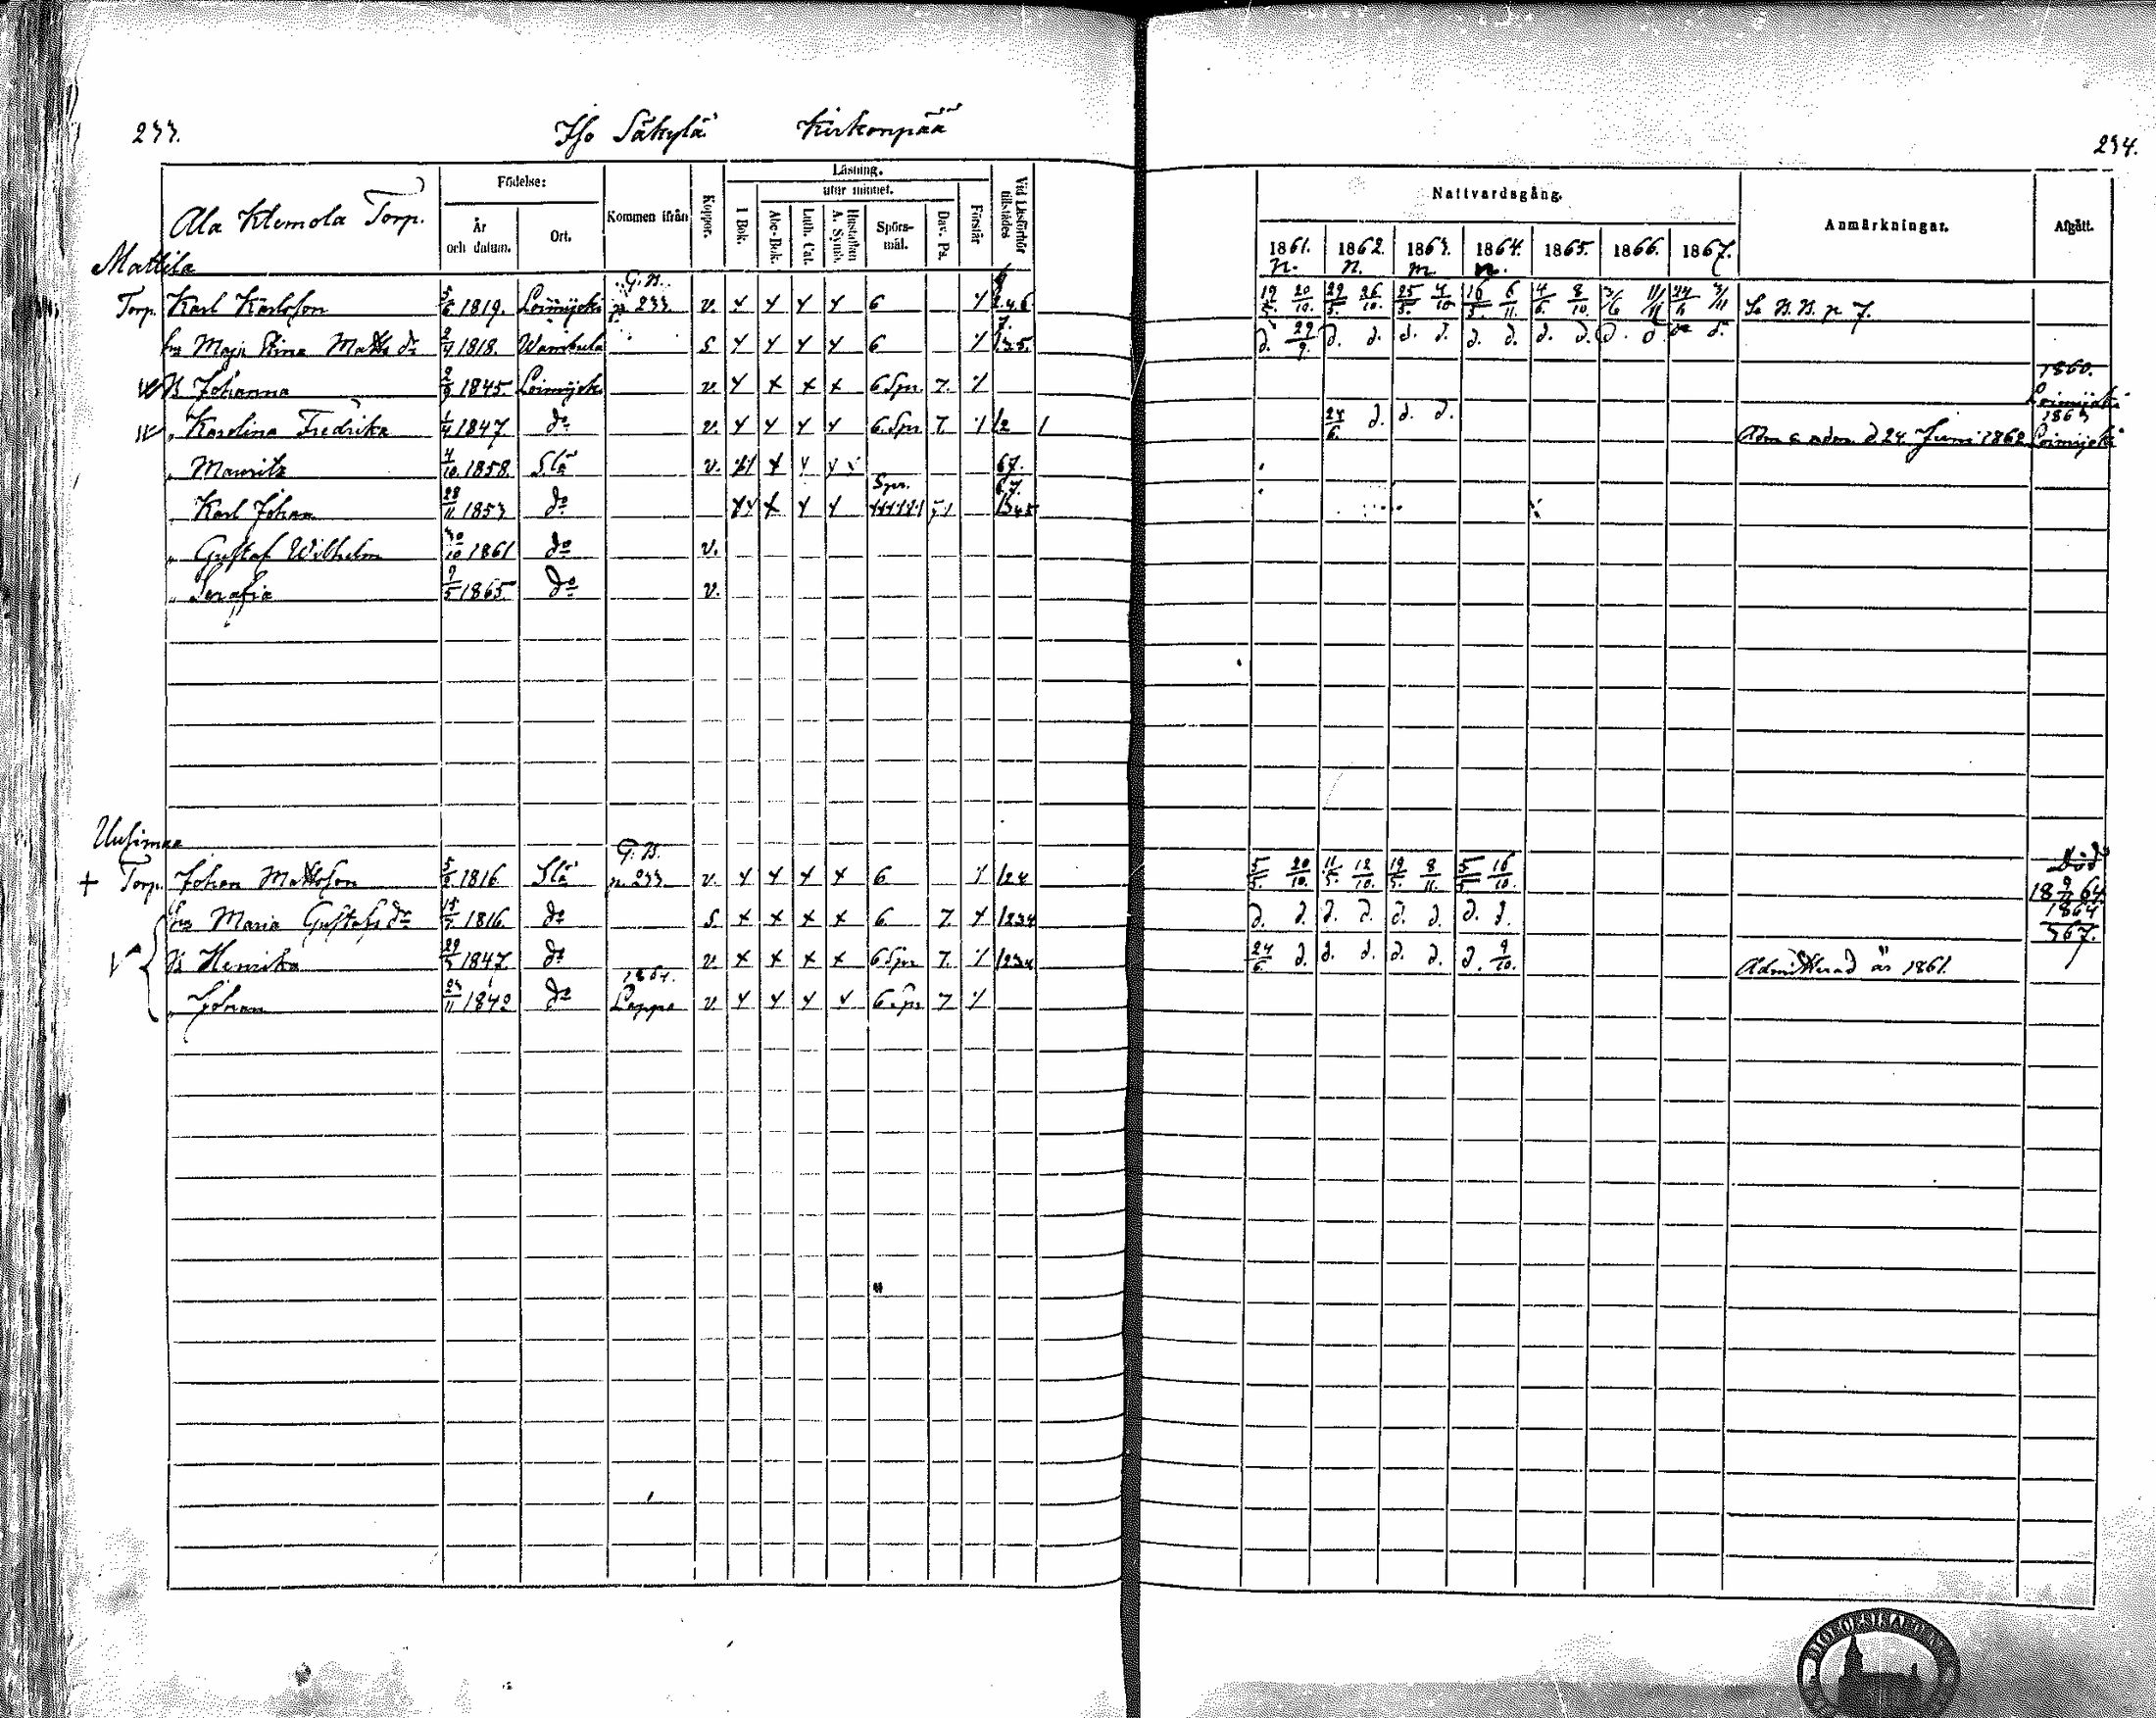 233. Iso Säkylä Kirkonpää 234.
Ala Klemola Torp.
Födelse: År och datum. Ort. Kommen ifrån Koppor. Läsning. I Bok. utur minnet. Abc-Bok. Luth. Cat. Hustaflan A. Symb. Spörs-mål. Dav. Ps. Förstår Vid Läsförhör tillstädes
Nattvardsgång. 1861. 1862. 1863. 1864. 1865. 1866. 1867. Anmärkningar. Afgått.
Mattila
n. n. m. n.
G.B.
Torp. Karl Karlsson 5/6 1819. Loimijoki p. 233. v. 6 246 19/5. 20/10. 29/5. 26/10. 25/5. 4/10 16/5. 6/11. 4/6. 8/10. Se B.B. p 7.
hu Maja Stina Matts dr 2/4 1818. Wambula s 6 135. d. 29/9. d. d. d. d. d. d. d. d. d. d.
1860.
B Johanna 2/9 1845. Loimijoki v. 6 Spr. 7. Loimijoki
1863
" Karolina Fredrika 1/4 1847 do v. 6. Spr 7. 12 24/6. d. d. d. Adm d 24 Juni 1862 Loimijoki
" Mauritz 4/10 1858. Slä v. 67.
Spr. 67.
" Karl Johan 28/11 1853 do 1345
" Gustaf Wilhelm 30/10 1861 do v.
" Serafia 9/5 1865. do v.
Uusimaa
G.B. Död
+ Torp. Johan Mattsson 5/2 1816 Slä p. 233 v. 6 124 5/5. 20/10. 11/5. 12/10. 19/5. 8/11. 5/5. 16/10. 18 64.
1864
hu Maria Gustafs dr 15/7 1816. do s. 6. 7. 1234 d. d. d. d. d. d. d. d. 567.
B Henrika 29/3 1847. do v. 6 Spr 7. 1234 24/6. d. d. d. d. d. d. 9/10. Admitterad år 1861.
1864.
" Johan 23/11 1842 do Lappo v. 6 Spr 7